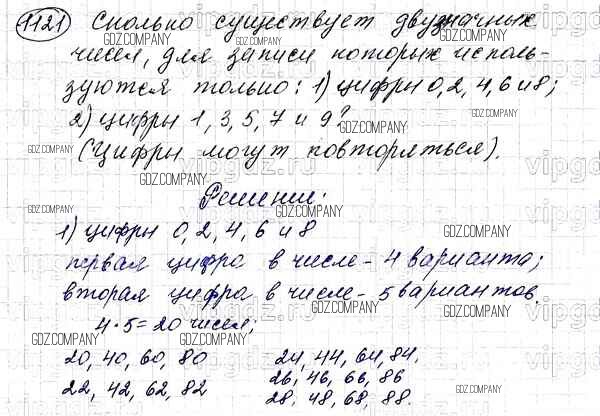 1121 Сколько существует двузначных
чисел, для записи которых исполь-
зуются только: 1) цифры 0, 2, 4, 6 и 8;
2) цифры 1, 3, 5, 7 и 9?
(Цифры могут повторяться).
Решение:
1) цифры 0, 2, 4, 6 и 8
первая цифра в числе - 4 варианта;
вторая цифра в числе - 5 вариантов.
4·5=20 чисел;
20, 40, 60, 80 24, 44, 64, 84.
22, 42, 62, 82 26, 46, 66, 86
28, 48, 68, 88.
GDZ.COMPANY
vipgdz